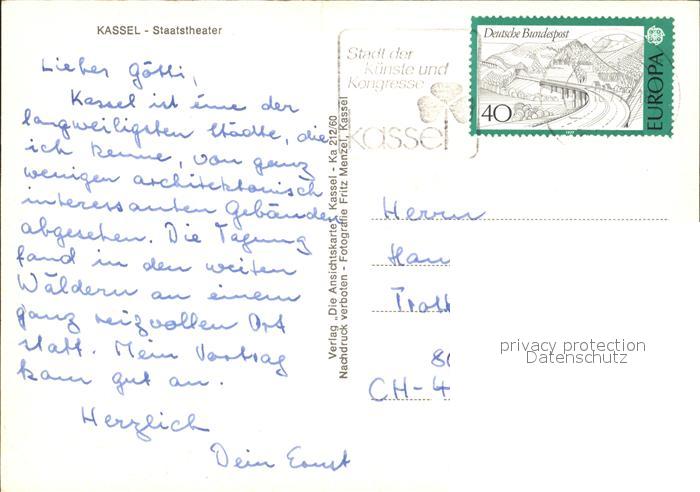 KASSEL - Staatstheater
Lieber Götti,
Kassel ist eine der
langweiligsten Städte, die
ich kenne, von ganz
wenigen architektonisch
interessanten Gebäuden
abgesehen. Die Tagung
fand in den weiten
Wäldern an einem
ganz reizvollen Ort
statt. Mein Vortrag
kam gut an.
Herzlich
Dein Ernst
Verlag „Die Ansichtskarte", Kassel - Ka 212/60
Nachdruck verboten - Fotografie Fritz Menzel, Kassel
Stadt der
Künste und
Kongresse
kassel
Deutsche Bundespost
40
EUROPA
Herrn
Han
Trott
CH-4
privacy protection
Datenschutz